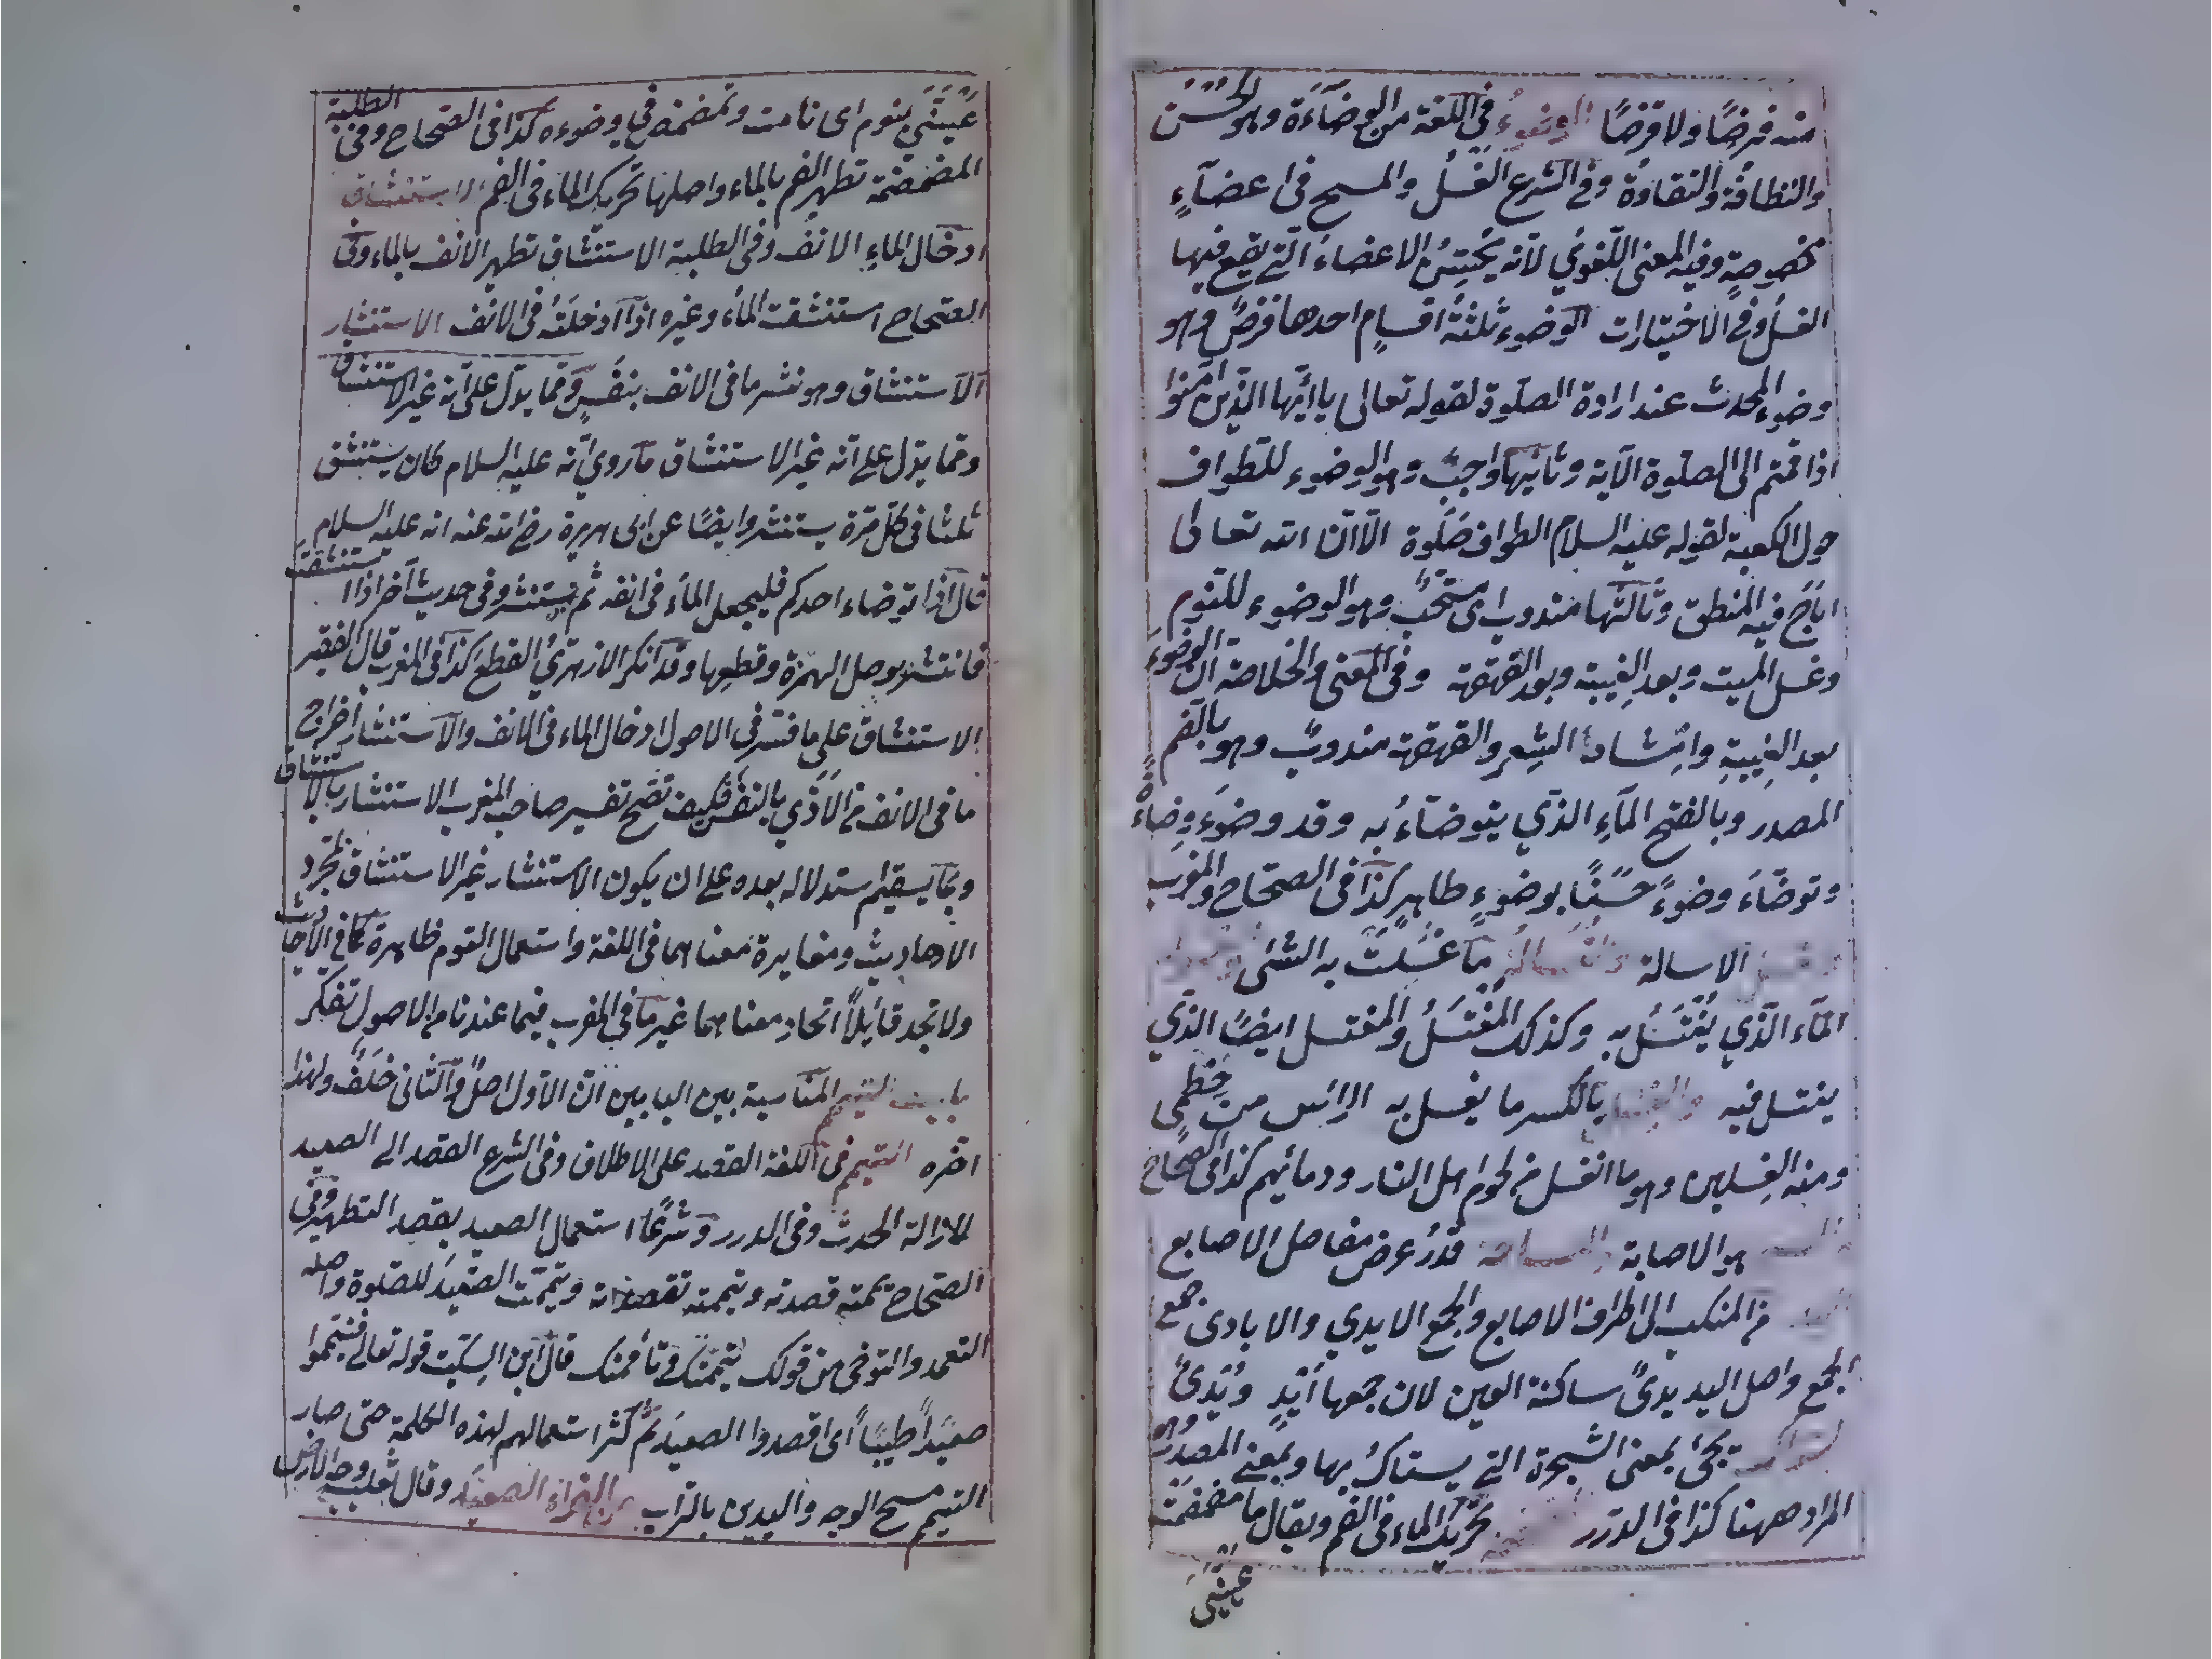 منه فرضًا ولا قرضًا الوضوءُ في اللغة من الوضآءَة وهو الحُسْن
والنظافة والنقاوة وفي الشرع الغَسلُ والمسح في اعضآءٍ
مخصوصةٍ وفيه المعنى اللّغوىُ لأنه يُحَسِّنُ الاعضاءَ الّتي يقع فيها
الغسلُ وفي الاختيارات الوضوء ثلثةُ اقسامٍ احدها فرضٌ وهو
وضوء المحدث عند ارادة الصلوة لقوله تعالى يا ايّها الّذين آمنوا
اذا قمتم الى الصلوة الآية وثانيها واجبٌ وهو الوضوء للطواف
حول الكعبة لقوله عليه السلام الطواف صَلٰوة الّا انّ الله تعالى
اباح فيه المنطق وثالثها مندوب اى مستحَبٌ وهو الوضوء للنوم
وغسل الميت وبعد الغِيبة وبعد القهقهة وفى المغنى والخلاصة ان الوضوءَ
بعد الغِيبةِ وانشاد الشِعرِ والقهقهة مندوبٌ وهو بالضم
المصدر وبالفتح المآءِ الذّي يتوضّاءُ به وقد وضوءَ وِضاءةً
وتوضّاءَ وضوءً حسَنًا بوضوءٍ طاهرٍ كذا فى الصحّاح والمغرب
الاسالة والغسالةُ ما غسَلتَ به الشئ
المآء الّذي يُغْتَسَلُ به وكذلك المُغْتَسَلُ والمغتسل ايضًا الذّي
يغتسل فيه بالكسر ما يغسل به الرأس من خِطْمي
ومنه الغِسلين وهو ما انغسل من لحوم اهل النار ودمائهم كذا فى الصحّاح
هو الاصابة قدرُ عرض مفاصل الاصابع
من المنكب الى اطراف الاصابع والجمع الايدي والايادى جمع
الجمع واصل اليد يدىٌ ساكنة العين لان جمعها اَيْدٍ ويُدِىٌ
تجئ بمعنى الشجرة التي يستاكُ بها وبمعنى المصدر وهو
المراد ههنا كذا فى الدرر تحريك الماء فى الفم ويقال ما مضمضَتْ
عينَيَّ
عَيْنَيَّ بنوم اى نامت وتمضمض في وضوءه كذا فى الصّحاح وفى الطلبة
المضمضة تطهير الفم بالماء واصلها تحريك الماء فى الفم الاستنشاق
ادخال الماءِ الانفَ وفى الطلبة الاستنشاق تطهير الانف بالماء وفى
الصّحاح استنشقت الماء وغيره اذا ادخلتَهُ فى الانف الاستنثار
الاستنشاق وهو نثر ما فى الانف بنفَسٍ وممّا يدلّ على انّه غير الاستنشاق
وممّا يدّل على انّه غير الاستنشاق ما رويَ انّه عليه السلام كان يستنشق
ثلثا فى كلّ مرّة يستنثر وايضًا عن ابى هريرة رضى الله عنه انه عليه السلام
قال اذا توضاء احدكم فليجعل الماءَ فى انفه ثم يستنثر وفى حديث آخر اذا استنشقت
فانتثر بوصل الهمزة وقطعها وقد انكر الازهريُ القطع كذا فى المغرب قال الفقير
الاستنشاق على ما فسّر في الاصول ادخال الماء فى الانف والاستنثار اخراج
ما فى الانف من الاذى بالنفَس فكيف تصّح تفسير صاحب المغرب الاستنثار بالاستنشاق
وبما يستقيم استدلاله بعده على ان يكون الاستنثار غير الاستنشاق بمجرد
الاحاديث ومغايرة معناهما فى اللغة واستعمال القوم ظاهرة كما فى الاحاديث
ولا تجد قائلاً اتحادِ معناهما غير ما في المغرب فيما عندنا من الاصول تفكر
باب التيمم المناسبة بين البابين انّ الاوّل اصلٌ والثّانى خلَفٌ ولهذا
اخّره التيمم فى اللغة القصد على الاطلاق وفى الشرع القصد الى الصعيد
لازالة الحدث وفى الدرر وشرعًا استعمال الصعيد بقصد التطهير وفى
الصّحاح يممته قصدته وتيممته تقصدته وتيمّمت الصّعيدَ للصّلوة واصله
التعمد والتوخى من قولك تيممتك وتأممتك قال ابن السِكّيت قوله تعالى فتيمموا
صعيدًا طيبًا اى اقصدوا الصعيدَ ثم كثر استعمالهم لهذه الكلمة حتى صار
التيمم مسح الوجه واليدين بالتراب الصعيد وقال ثعلب وجه الارض